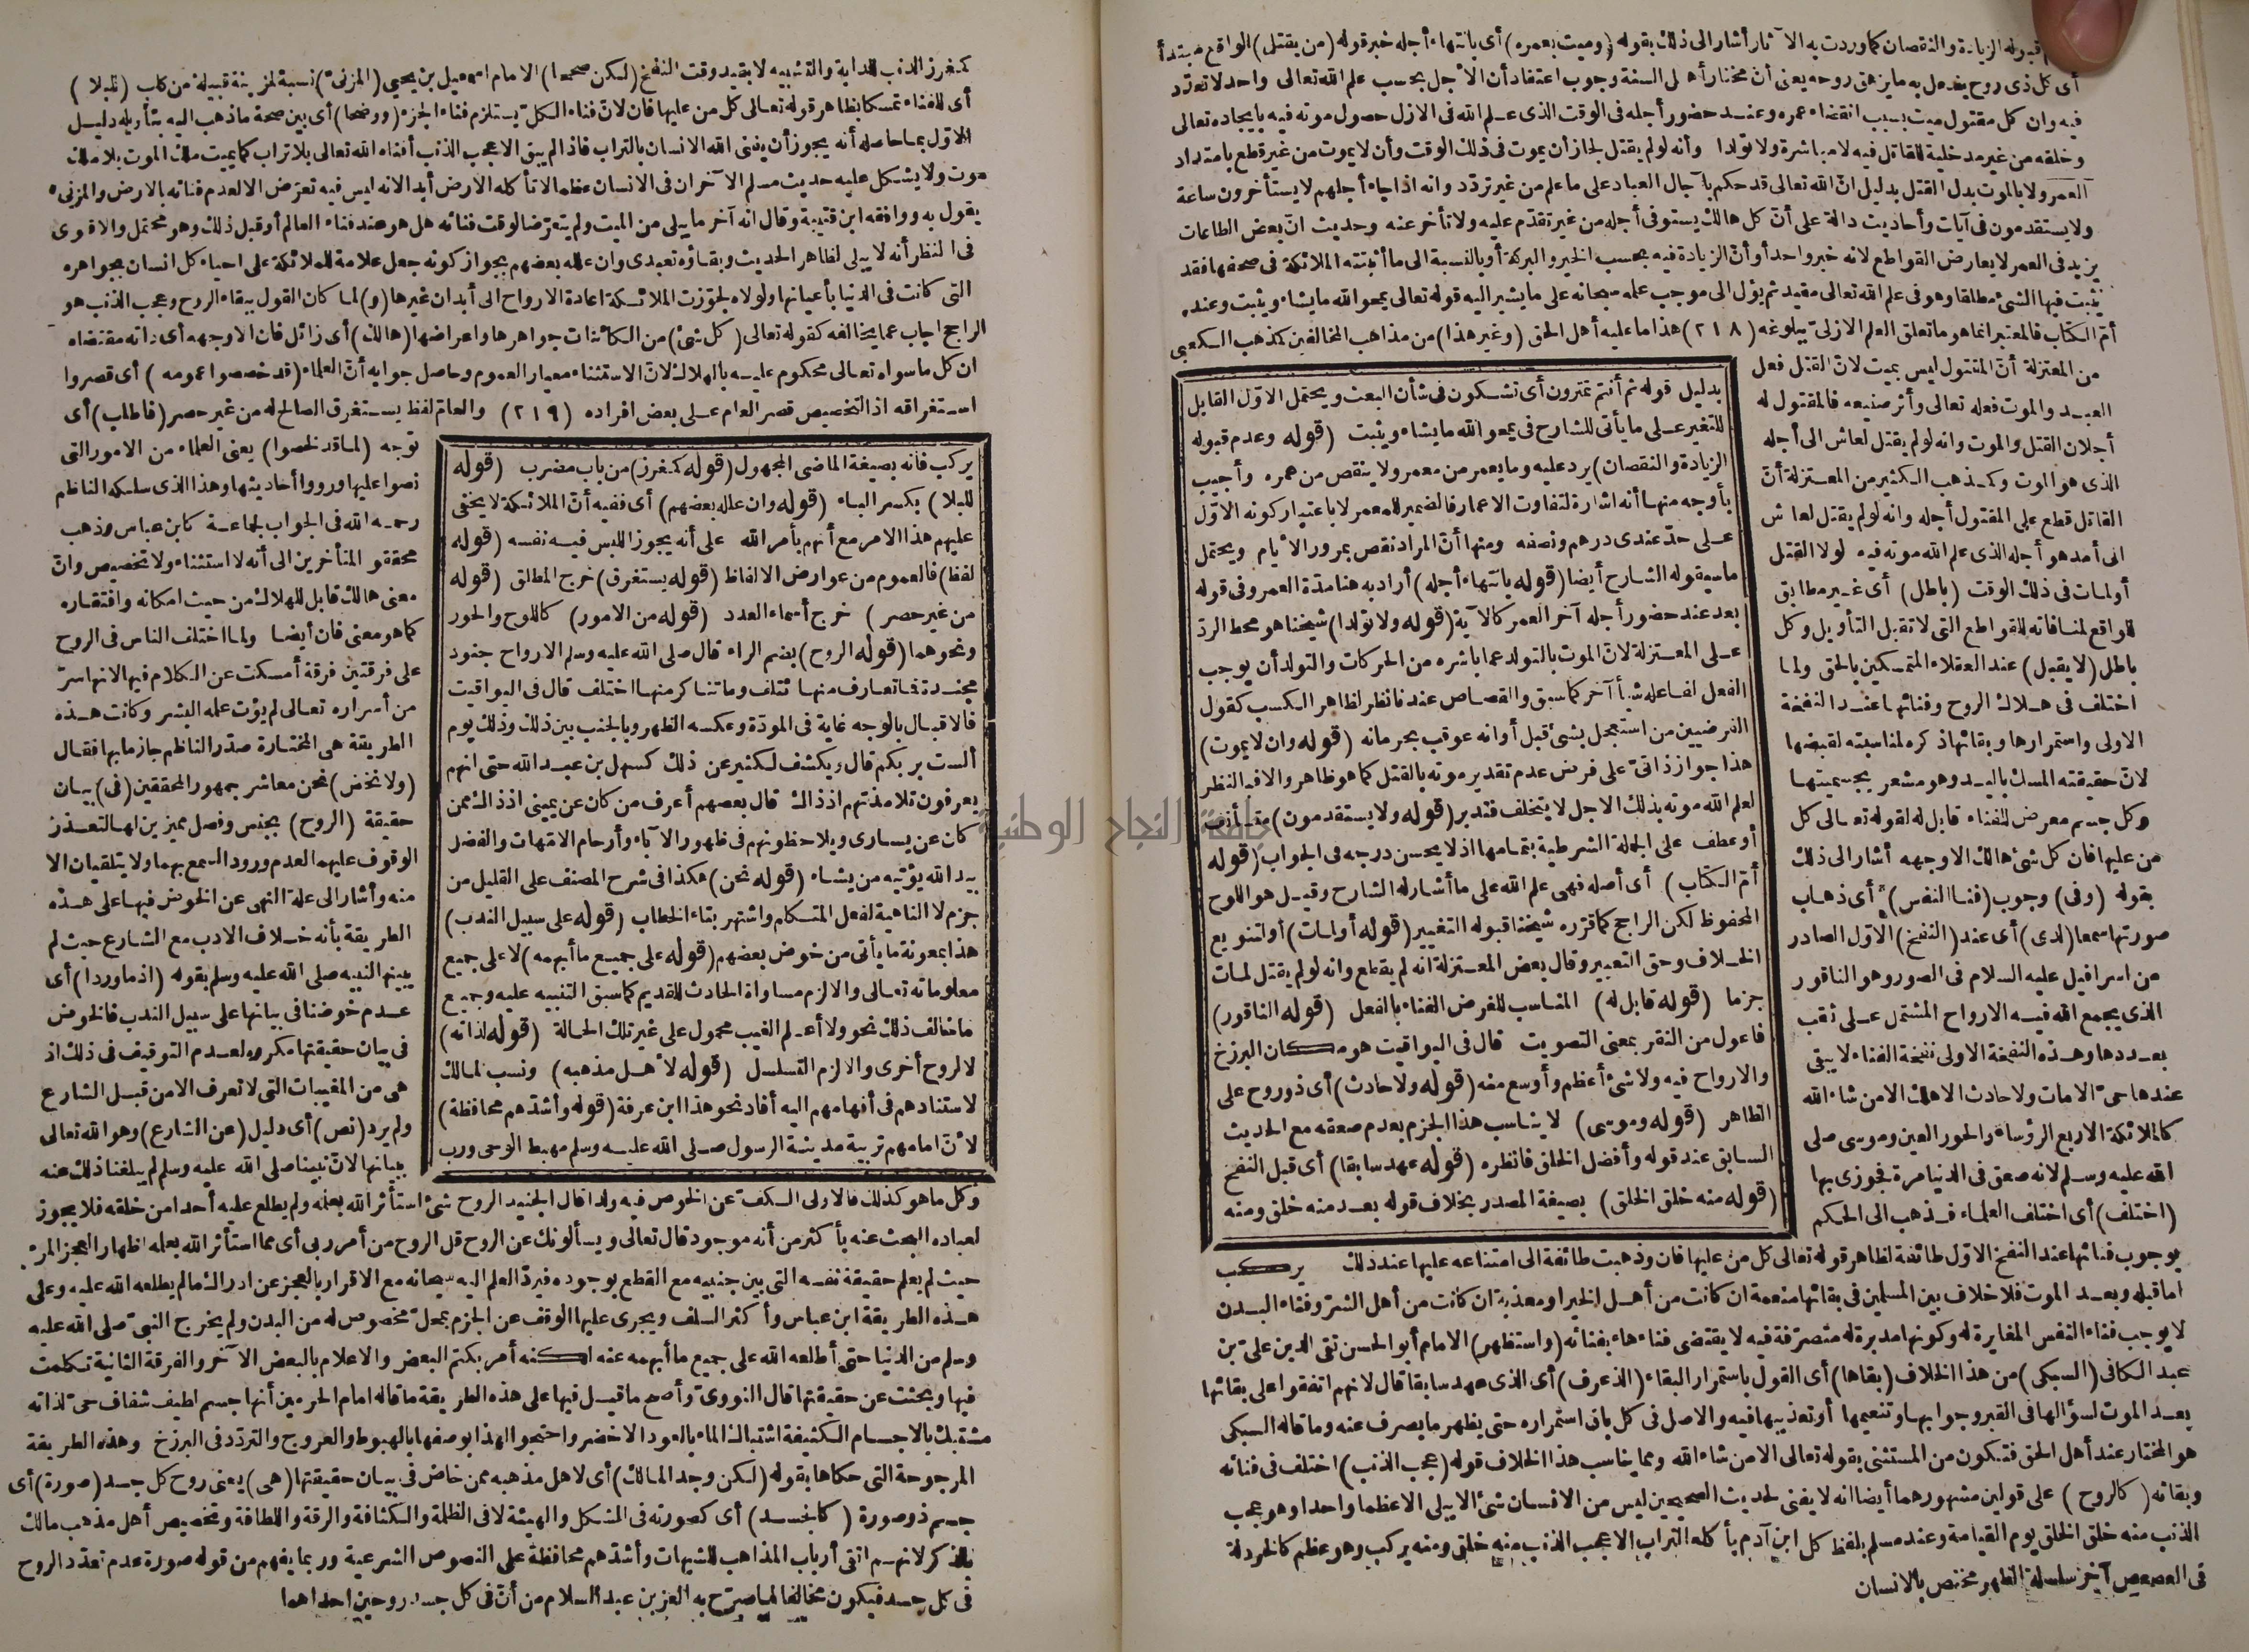 قبوله الزيادة والنقصان كما وردت به الآثار أشار الى ذلك بقوله (وميت بعمره) أى بانتهاء أجله خبر قوله (من يقتل) الواقع مبتدأ
أى كل ذى روح يفعل به ما يزهق روحه يعنى أن مختار أهل السنة وجوب اعتقاد أن الأجل بحسب علم الله تعالى واحد لا تعدد
فيه وان كل مقتول ميت بسبب انقضاء عمره وعند حضور أجله فى الوقت الذى علم الله فى الازل حصول موته فيه بايجاده تعالى
وخلقه من غير مدخلية للقاتل فيه لا مباشرة ولا تولدا وأنه لو لم يقتل لجاز أن يموت فى ذلك الوقت وأن لا يموت من غير قطع بامتداد
العمر ولا بالموت بدل القتل بدليل انّ الله تعالى قد حكم بآجال العباد على ما علم من غير تردّد وانه اذا جاء أجلهم لا يستأخرون ساعة
ولا يستقدمون فى آيات وأحاديث دالة على أنّ كل هالك يستوفى أجله من غير تقدّم عليه ولا تأخر عنه وحديث انّ بعض الطاعات
يزيد فى العمر لا يعارض القواطع لانه خبر واحد أو أنّ الزيادة فيه بحسب الخير والبركة أو بالنسبة الى ما أثبتته الملائكة فى صحفها فقد
يثبت فيها الشئ مطلقا وهو فى علم الله تعالى مقيد ثم يؤل الى موجب علمه سبحانه على ما يشير اليه قوله تعالى يمحو الله ما يشاء ويثبت وعنده
أمّ الكتاب فالمعتبر انما هو ما تعلق العلم الازلىّ ببلوغه (٢١٨) هذا ما عليه أهل الحق (وغير هذا) من مذاهب المخالفين كمذهب الكعبى
من المعتزلة أنّ المقتول ليس بميت لانّ القتل فعل
العبد والموت فعله تعالى وأثر صنيعه فالمقتول له
أجلان القتل والموت وانه لو لم يقتل لعاش الى أجله
الذى هو الموت وكمذهب الكثير من المعتزلة أنّ
القاتل قطع على المقتول أجله وانه لو لم يقتل لعاش
الى أمد هو أجله الذى علم الله موته فيه لولا القتل
أو لمات فى ذلك الوقت (باطل) أى غير مطابق
للواقع لمنافاته للقواطع التى لا تقبل التأويل وكل
باطل (لا يقبل) عند العقلاء المتمسكين بالحق ولما
اختلف فى هلاك الروح وفنائها عند النفخة
الاولى واستمرارها وبقائها ذكره لمناسبته لقبضها
لانّ حقيقته المسك باليد وهو مشعر بجسميتها
وكل جسم معرض للفناء قابل له لقوله تعالى كل
من عليها فان كل شئ هالك الا وجهه أشار الى ذلك
بقوله (وفى) وجوب (فنا النفس) أى ذهاب
صورتها سمعا (لدى) أى عند (النفخ) الاوّل الصادر
من اسرافيل عليه السلام فى الصور وهو الناقور
الذى يجمع الله فيه الارواح المشتمل على ثقب
بعددها وهذه النفخة الاولى نفخة الفناء لا يبقى
عندها حىّ الا مات ولا حادث الا هلك الا من شاء الله
كالملائكة الاربع الرؤساء والحور العين وموسى صلى
الله عليه وسلم لانه صعق فى الدنيا مرة فجوزى بها
(اختلف) أى اختلف العلماء فذهب الى الحكم
بدليل قوله ثم أنتم تمترون أى تشكون فى شأن البعث ويحتمل الاوّل القابل
للتغير على ما يأتى للشارح فى يمحو الله ما يشاء ويثبت (قوله وعدم قبوله
الزيادة والنقصان) يرد عليه وما يعمر من معمر ولا ينقص من عمره وأجيب
بأوجه منها أنه اشارة لتفاوت الاعمار فالضمير للمعمر لا باعتبار كونه الاوّل
على حدّ عندى درهم ونصفه ومنها أنّ المراد نقص بمرور الأيام ويحتمل
ما سيقوله الشارح أيضا (قوله بانتهاء أجله) أراد به هنا مدّة العمر وفى قوله
بعد عند حضور أجله آخر العمر كالآية (قوله ولا تولدا) شيخنا هو محط الردّ
على المعتزلة لانّ الموت بالتولد عما باشره من الحركات والتولد أن يوجب
الفعل لفاعله شيأ آخر كما سبق والقصاص عند فانظر لظاهر الكسب كقول
الفرضيين من استعجل بشئ قبل أوانه عوقب بحرمانه (قوله وان لا يموت)
هذا جواز ذاتىّ على فرض عدم تقدير موته بالقتل كما هو ظاهر والا فبالنظر
لعلم الله موته بذلك الاجل لا يتخلف فتدبر (قوله ولا يستقدمون) مستأنف
أو عطف على الجملة الشرطية بتمامها اذ لا يحسن درجه فى الجواب (قوله
أمّ الكتاب) أى أصله فهى علم الله على ما أشار له الشارح وقيل هو اللوح
المحفوظ لكن الراجح كما قرره شيخنا قبوله التغيير (قوله أو لمات) أو لتنويع
الخلاف وحق التعبير وقال بعض المعتزلة انه لم يقطع وانه لو لم يقتل لمات
جزما (قوله قابل له) المناسب للغرض الفناء بالفعل (قوله الناقور)
فاعول من النقر بمعنى التصويت قال فى اليواقيت هو مكان البرزخ
والارواح فيه ولا شئ أعظم وأوسع منه (قوله ولا حادث) أى ذو روح على
الظاهر (قوله وموسى) لا يناسب هذا الجزم بعدم صعقه مع الحديث
السابق عند قوله وأفضل الخلق فانظره (قوله عهد سابقا) أى قبل النفخ
(قوله منه خلق الخلق) بصيغة المصدر بخلاف قوله بعد منه خلق ومنه
يركب
بوجوب فنائها عند النفخ الاوّل طائفة لظاهر قوله تعالى كل من عليها فان وذهبت طائفة الى امتناعه عليها عند ذلك
اما قبله وبعد الموت فلا خلاف بين المسلمين فى بقائها منعمة ان كانت من أهل الخير او معذبة ان كانت من أهل الشرّ وفناء البدن
لا يوجب فناء النفس المغايرة له وكونها مدبرة له متصرّفة فيه لا يقتضى فناءها بفنائه (واستظهر) الامام أبو الحسن تقى الدين علىّ بن
عبد الكافى (السبكى) من هذا الخلاف (بقاها) أى القول باستمرار البقاء (الذ عرف) أى الذى عهد سابقا قال لانهم اتفقوا على بقائها
بعد الموت لسؤالها فى القبر وجوابها وتنعيمها أو تعذيبها فيه والاصل فى كل باق استمراره حتى يظهر ما يصرف عنه وما قاله السبكى
هو المختار عند أهل الحق فتكون من المستثنى بقوله تعالى الا من شاء الله ومما يناسب هذا الخلاف قوله (عجب الذنب) اختلف فى فنائه
وبقائه (كالروح) على قولين مشهورهما أيضا انه لا يفنى لحديث الصحيحين ليس من الانسان شئ الا يبلى الا عظما واحدا وهو عجب
الذنب منه خلق الخلق يوم القيامة وعند مسلم بلفظ كل ابن آدم يأكله التراب الا عجب الذنب منه خلق ومنه يركب وهو عظم كالخردلة
فى العصعص آخر سلسلة الظهر مختص بالانسان
كمغرز الذنب للدابة والتشبيه لا بقيد وقت النفخ (لكن صححا) الامام اسمعيل بن يحيى (المزنىّ) نسبة لمزينة قبيلة من كلب (للبلا)
أى للفناء تمسكا بظاهر قوله تعالى كل من عليها فان لانّ فناء الكلّ يستلزم فناء الجزء (ووضحا) أى بين صحة ما ذهب اليه بتأويله دليل
الاوّل بما حاصله أنه يجوز أن يفنى الله الانسان بالتراب فاذا لم يبق الا عجب الذنب أفناه الله تعالى بلا تراب كما يميت ملك الموت بلا ملك
موت ولا يشكل عليه حديث مسلم الآخر ان فى الانسان عظما لا تأكله الارض أبدا لانه ليس فيه تعرّض الا لعدم فنائه بالارض والمزنىّ
يقول به ووافقه ابن قتيبة وقال انه آخر ما يبلى من الميت ولم يتعرّضا لوقت فنائه هل هو عند فناء العالم أو قبل ذلك وهو محتمل والاقوى
فى النظر أنه لا يبلى لظاهر الحديث وبقاؤه تعبدى وان علله بعضهم بجواز كونه جعل علامة للملائكة على احياء كل انسان بجواهره
التى كانت فى الدنيا بأعيانها ولولاه لجوّزت الملائكة اعادة الارواح الى أبدان غيرها (و) لما كان القول ببقاء الروح وعجب الذنب هو
الراجح اجاب عما يخالفه كقوله تعالى (كل شئ) من الكائنات جواهرها واعراضها (هالك) أى زائل فان الا وجهه أى ذاته مقتضاه
ان كل ما سواه تعالى محكوم عليه بالهلاك لانّ الاستثناء معيار العموم وحاصل جوابه أنّ العلماء (قد خصصوا عمومه) أى قصروا
استغراقه اذ التخصيص قصر العام على بعض افراده (٢١٩) والعامّ لفظ يستغرق الصالح له من غير حصر (فاطلب) أى
يركب فانه بصيغة الماضى المجهول (قوله كمغرز) من باب مضرب (قوله
للبلا) بكسر الباء (قوله وان علله بعضهم) أى ففيه أنّ الملائكة لا يخفى
عليهم هذا الامر مع أنهم بأمر الله على أنه يجوز اللبس فيه نفسه (قوله
لفظ) فالعموم من عوارض الالفاظ (قوله يستغرق) خرج المطلق (قوله
من غير حصر) خرج أسماء العدد (قوله من الامور) كاللوح والحور
ونحوهما (قوله الروح) بضم الراء قال صلى الله عليه وسلم الارواح جنود
مجندة فما تعارف منها ائتلف وما تناكر منها اختلف قال فى اليواقيت
فالاقبال بالوجه غاية فى المودّة وعكسه الظهر وبالجنب بين ذلك وذلك يوم
ألست بربكم قال ويكشف لكثير عن ذلك كسهل بن عبد الله حتى انهم
يعرفون تلامذتهم اذ ذاك قال بعضهم أعرف من كان عن يمينى اذ ذاك ممن
كان عن يسارى ويلاحظونهم فى ظهور الآباء وأرحام الامّهات والفضل
بيد الله يؤتيه من يشاء (قوله نحن) هكذا فى شرح المصنف على القليل من
جزم لا الناهية لفعل المتكلم واشتهر بتاء الخطاب (قوله على سبيل الندب)
هذا بمعونة ما يأتى من خوض بعضهم (قوله على جميع ما أبهمه) لا على جميع
معلوماته تعالى والا لزم مساواة الحادث للقديم كما سبق التنبيه عليه وجميع
ما خالف ذلك نحو ولا أعلم الغيب محمول على غير تلك الحالة (قوله لذاته)
لا لروح أخرى والا لزم التسلسل (قوله لأهل مذهبه) ونسب لمالك
لاستنادهم فى أفهامهم اليه أفاد نحو هذا ابن عرفة (قوله وأشدّهم محافظة)
لأنّ امامهم تربية مدينة الرسول صلى الله عليه وسلم مهبط الوحى ورب
توجه (لما قد لخصوا) يعنى العلماء من الامور التى
نصوا عليها ورووا أحاديثها وهذا الذى سلكه الناظم
رحمه الله فى الجواب لجماعة كابن عباس وذهب
محققو المتأخرين الى أنه لا استثناء ولا تخصيص وانّ
معنى هالك قابل للهلاك من حيث امكانه وافتقاره
كما هو معنى فان أيضا ولما اختلف الناس فى الروح
على فرقتين فرقة أمسكت عن الكلام فيها لانها سرّ
من أسراره تعالى لم يؤت علمه البشر وكانت هذه
الطريقة هى المختارة صدّر الناظم جازما بها فقال
(ولا نخض) نحن معاشر جمهور المحققين (فى) بيان
حقيقة (الروح) بجنس وفصل مميزين لها لتعذر
الوقوف عليهما لعدم ورود السمع بهما ولا يتلقيان الا
منه وأشار الى علة النهى عن الخوض فيها على هذه
الطريقة بأنه خلاف الادب مع الشارع حيث لم
يبينها لنبيه صلى الله عليه وسلم بقوله (اذ ما وردا) أى
عدم خوضنا فى بيانها على سبيل الندب فالخوض
فى بيان حقيقتها مكروه لعدم التوقيف فى ذلك اذ
هى من المغيبات التى لا تعرف الا من قبل الشارع
ولم يرد (نص) أى دليل (عن الشارع) وهو الله تعالى
ببيانها لانّ نبينا صلى الله عليه وسلم لم يبلغنا ذلك عنه
وكل ما هو كذلك فالاولى الكفّ عن الخوض فيه ولذا قال الجنيد الروح شئ استأثر الله بعلمه ولم يطلع عليه أحدا من خلقه فلا يجوز
لعباده البحث عنه بأكثر من أنه موجود قال تعالى ويسألونك عن الروح قل الروح من أمر ربى أى مما استأثر الله بعلمه اظهارا لعجز المرء
حيث لم يعلم حقيقة نفسه التى بين جنبيه مع القطع بوجوده فيردّ العلم اليه سبحانه مع الاقرار بالعجز عن ادراك ما لم يطلعه الله عليه وعلى
هذه الطريقة ابن عباس وأكثر السلف ويجرى عليها الوقف عن الجزم بمحلّ مخصوص له من البدن ولم يخرج النبىّ صلى الله عليه
وسلم من الدنيا حتى أطلعه الله على جميع ما أبهمه عنه لكنه أمر بكتم البعض والاعلام بالبعض الآخر والفرقة الثانية تكلمت
فيها وبحثت عن حقيقتها قال النووىّ وأصح ما قيل فيها على هذه الطريقة ما قاله امام الحرمين أنها جسم لطيف شفاف حىّ لذاته
مشتبك بالاجسام الكثيفة اشتباك الماء بالعود الاخضر واحتجوا لهذا بوصفها بالهبوط والعروج والتردّد فى البرزخ وهذه الطريقة
المرجوحة التى حكاها بقوله (لكن وجد المالك) أى لاهل مذهبه ممن خاض فى بيان حقيقتها (هى) يعنى روح كل جسد (صورة) أى
جسم ذو صورة (كالجسد) أى كصورته فى الشكل والهيئة لا فى الظلمة والكثافة والرقة واللطافة وتخصيص أهل مذهب مالك
بالذكر لانهم اتقى أرباب المذاهب للشبهات وأشدّهم محافظة على النصوص الشرعية وربما يفهم من قوله صورة عدم تعدّد الروح
فى كل جسد فيكون مخالفا لما صرّح به العز بن عبد السلام من أنّ فى كل جسد روحين احداهما
جامعة النجاح الوطنية